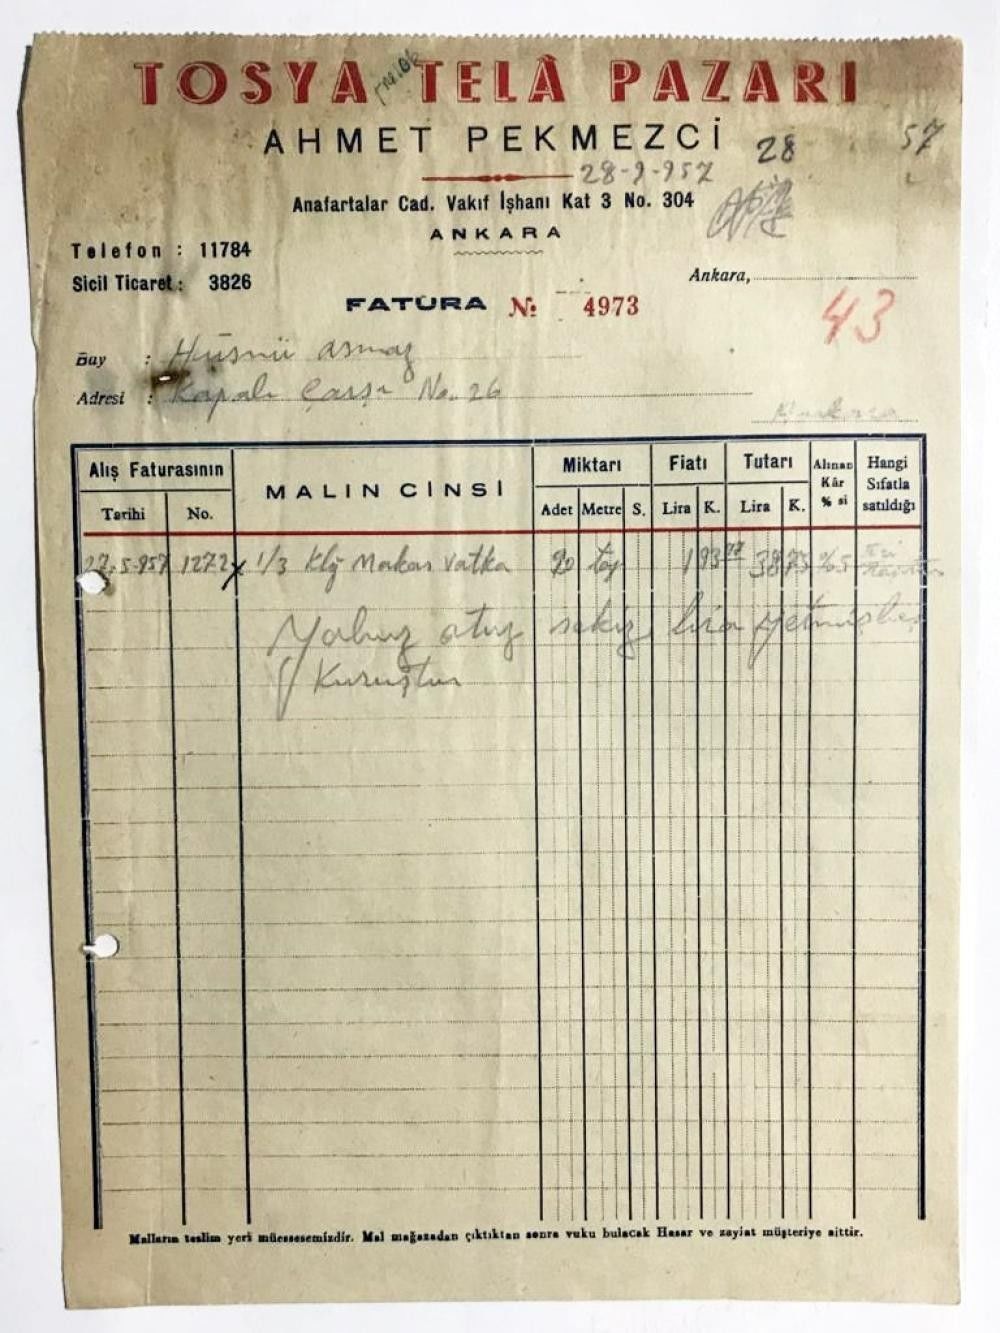 TOSYA TELÂ PAZARI
AHMET PEKMEZCİ
28
57
28-9-957
Anafartalar Cad. Vakıf İşhanı Kat 3 No. 304
ANKARA
Telefon : 11784
Sicil Ticaret : 3826
Ankara,
FATURA № 4973
43
Bay : Hüsnü asmaz
Adresi : Kapalı Çarşı No. 26
Ankara
Alış Faturasının
MALIN CİNSİ
Miktarı
Fiatı
Tutarı
Alınan Kâr % si
Hangi Sıfatla satıldığı
Tarihi No. Adet Metre S. Lira K. Lira K.
27-5-957 1272 1/3 Klş Makas Vatka 20 1 93 77 38 75 %5
Yalnız otuz sekiz lira yetmişbeş
Kuruştur
Malların teslim yeri müessesemizdir. Mal mağazadan çıktıktan sonra vuku bulacak Hasar ve zayiat müşteriye aittir.